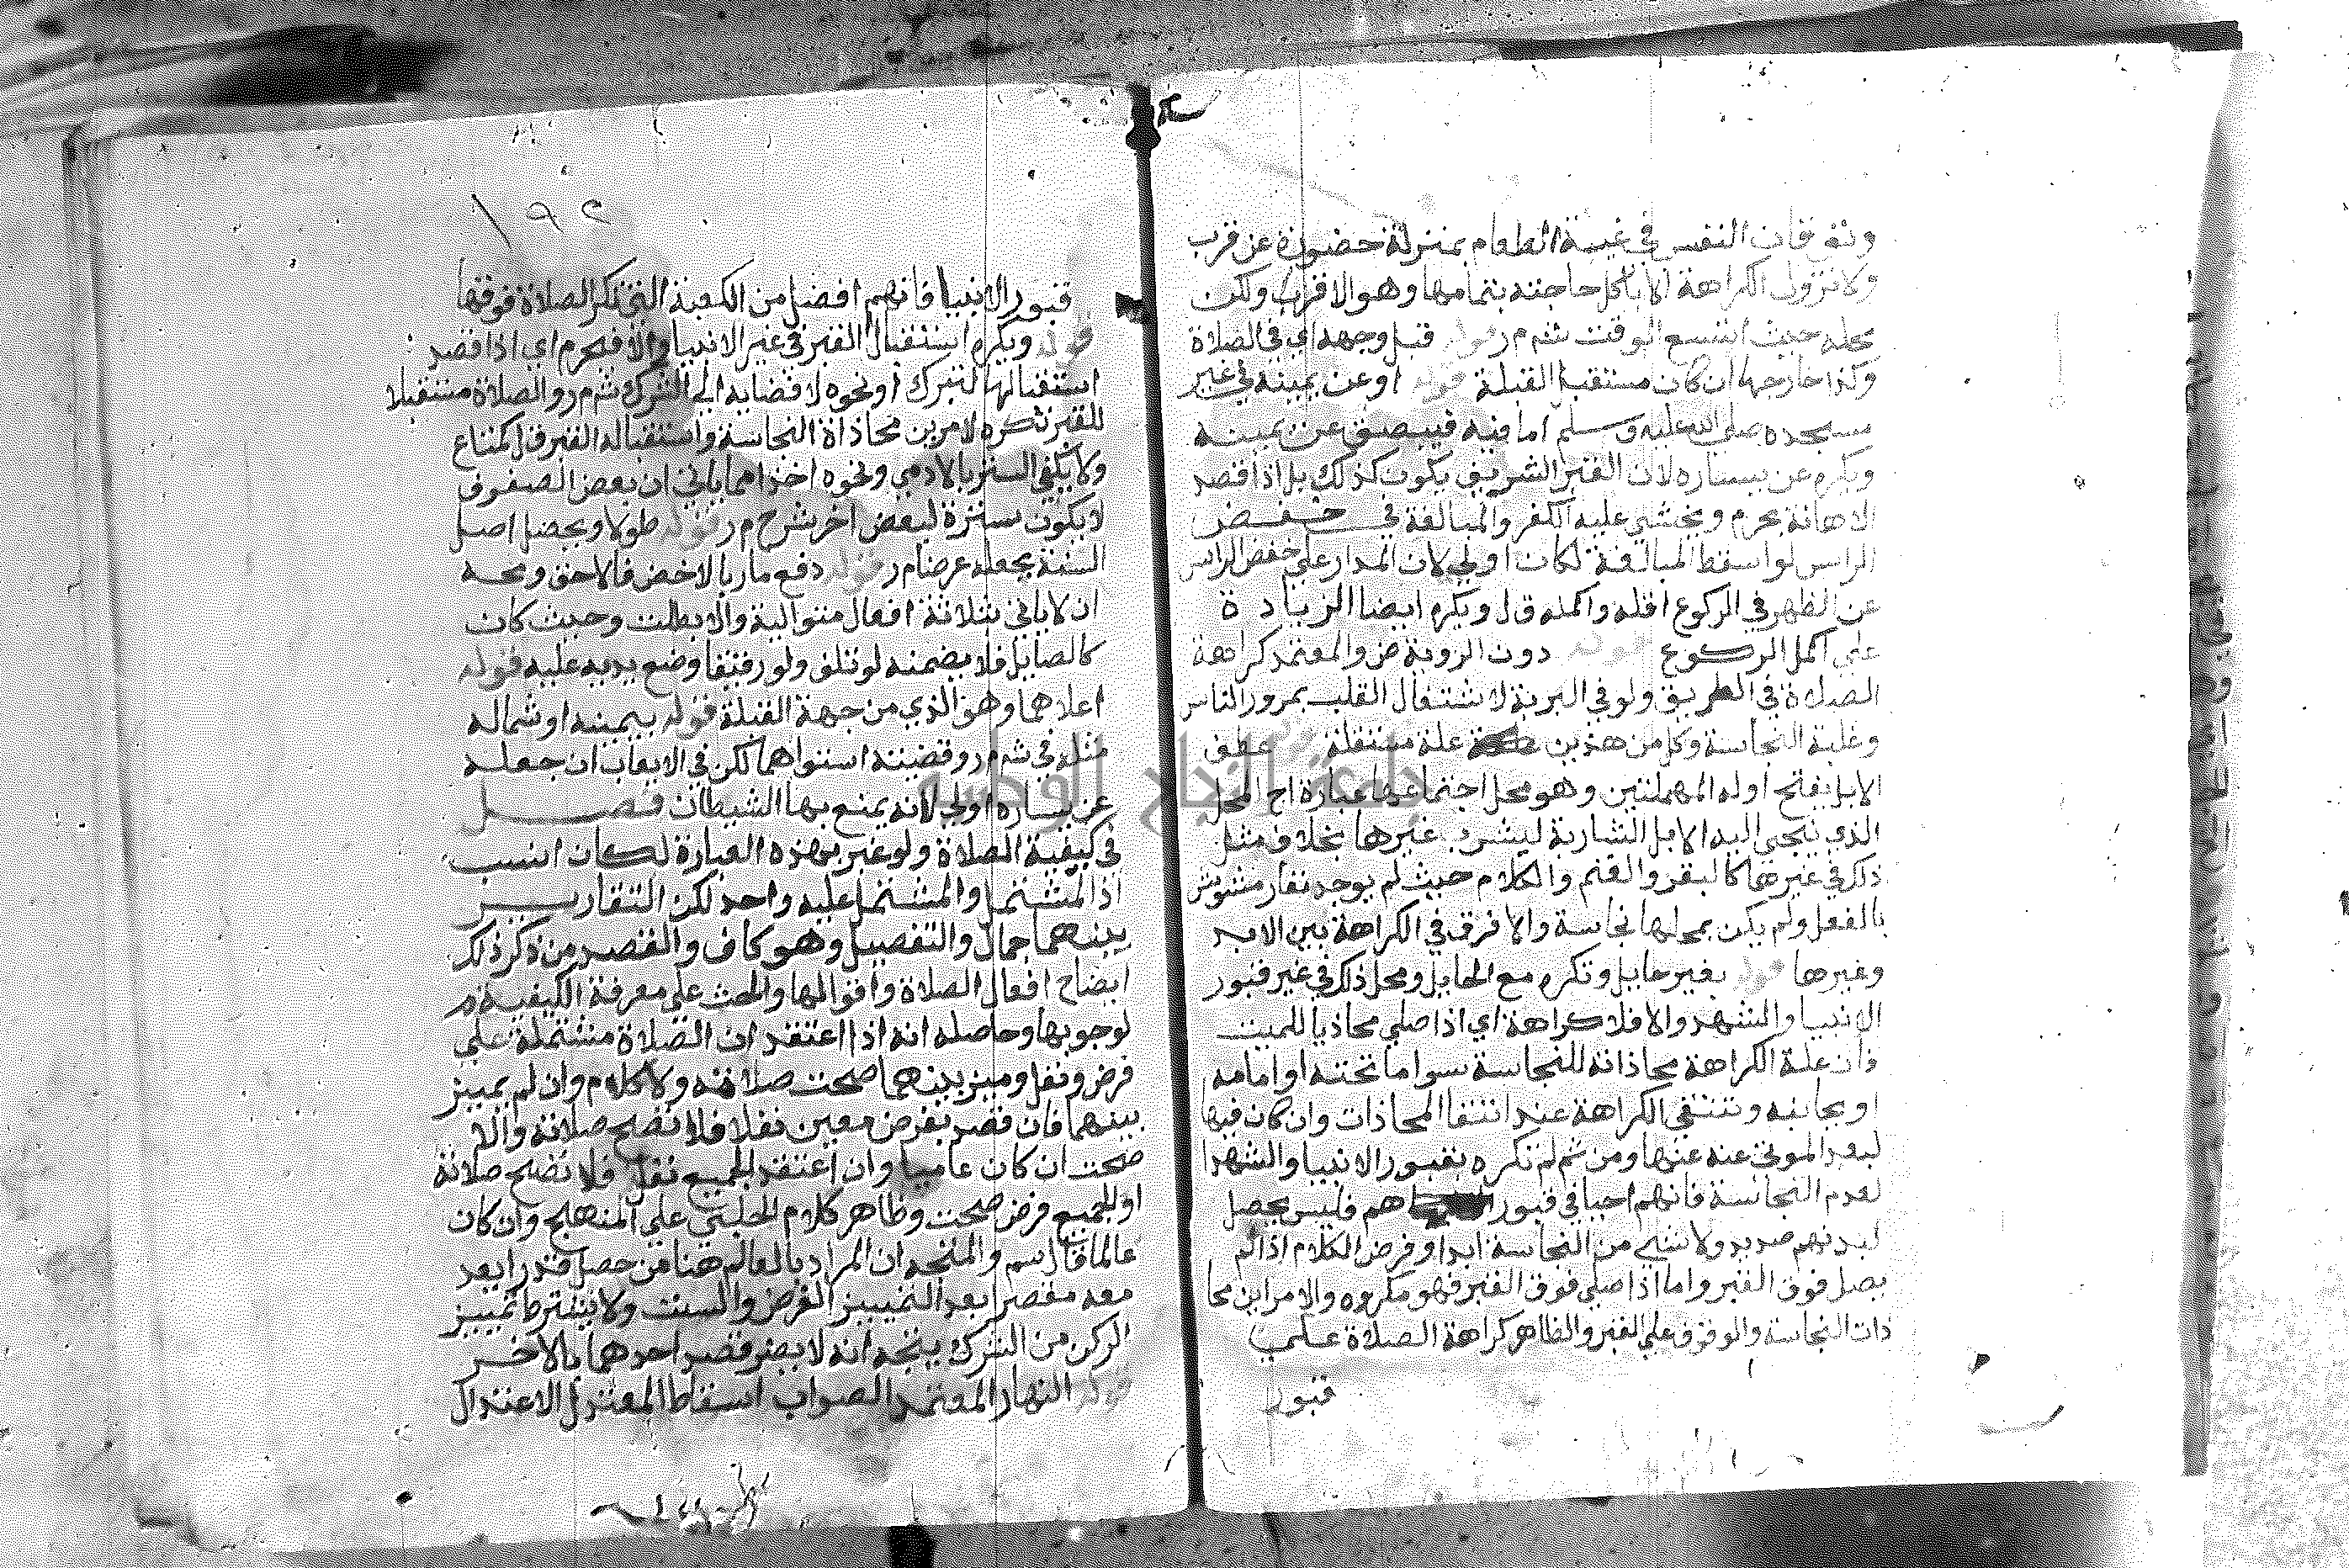 وتوقان النفس في غيبة الطعام بمنزلة حضوره عن قرب
ولا تزول الكراهة الا باكل حاجته بتمامها وهو الاقرب ولكن
محله حيث اتسع الوقت شم ر قوله قبل وجهه اي في الصلاة
وكذا خارجها ان كان مستقبل القبلة قوله او عن يمينه في غير
مسجده صلي الله عليه وسلم اما فيه فيبصق عن يمينه
ويكره عن يساره لان القبر الشريف يكون كذلك بل اذا قصد
الاهانة يحرم ويخشي عليه الكفر والمبالغة في خفض
الراس لو اسقط المبالغة لكان اولي لان المدار علي خفض الراس
عن الظهر في الركوع اقله واكمله ق ل ويكره ايضا الزيادة
علي اكمل الركوع قوله دون والمعتمد كراهة
الصلاة في الطريق ولو في البرية لاشتغال القلب بمرور الناس
وغلبة النجاسة وكل من هذين علة مستقلة عطن
الابل بفتح اوله المهملتين وهو محل اجتماعها عبارة اج المحل
الذي تنحي اليه الابل الشاربة ليشرب غيرها بخلاف مثل
ذلك في غيرها كالبقر والغنم والكلام حيث لم يوجد نفار مشوش
بالفعل ولم يكن بمحلها نجاسة والا فرق في الكراهة بين الابل
وغيرها قوله بغير حايل وتكره مع الحايل ومحل ذلك في غير قبور
الانبيا والشهدا والا فلا كراهة اي اذا صلي محاذيا للميت
فان علة الكراهة محاذاته للنجاسة سوا ما تحته او امامه
او بجانبه وتنتفي الكراهة عند انتفا المحاذات وان كان فيها
لبعد الموتي عنه عنها ومن ثم لم تكره بقبور الانبيا والشهدا
لعدم النجاسة فانهم احيا في قبورهم فليس يحصل
لبدنهم صديد ولا شي من النجاسة ابدا وفرض الكلام اذا لم
يصل فوق القبر واما اذا صلي فوق القبر فهو مكروه والامرين محا
ذات النجاسة والوقوف علي القبر والظاهر كراهة الصلاة علي
قبور
١٩٢
قبور الانبيا فانهم افضل من الكعبة التي تكره الصلاة فوقها
قوله ويكره استقبال القبر في غير الانبيا والا فيحرم اي اذا قصد
استقبالها لتبرك او نحوه لافضايه الي الشرك شم ر والصلاة مستقبلا
للقبر تكره لامرين محاذاة النجاسة واستقباله القبر ق ل كمتاع
ولا يكفي الستر بالادمي ونحوه اخذا مما ياتي ان بعض الصفوف
لا يكون سترة لبعض اخر شرح م ر قوله طولا ويحصل اصل
السنة بجعله عرضا م ر قوله دفع مار بالاخف فالاخف ومحله
ان لا ياتي بثلاثة افعال متوالية والا بطلت وحيث كان
كالصايل فلا يضمنه لو تلف ولو رقيقا وضع يديه عليه قوله
اعلاهما وهو الذي من جهة القبلة قوله بيمينه او شماله
مثله في شم ر وقضيته استواهما لكن في الايعاب ان جعله
عن يساره اولي لانه يمنع بها الشيطان فصل
في كيفية الصلاة ولو عبر بهذه العبارة لكان انسب
اذ المشتمل والمشتمل عليه واحد لكن التقارب
بينهما اجمال والتفصيل وهو كاف والقصد من ذكر ذلك
ايضاح افعال الصلاة واقوالها والحث علي معرفة الكيفية
لوجوبها وحاصله انه اذا اعتقد ان الصلاة مشتملة علي
فرض ونفل وميز بينهما صحت صلاته ولا كلام وان لم يميز
بينهما فان قصد بفرض معين نفلا فلا تصح صلاته والا
صحت ان كان عاميا وان اعتقد الجميع نفل فلا تصح صلاته
او الجميع فرض صحت وظاهر كلام الحلبي علي المنهج وان كان
عالما قال سم والمتجه ان المراد بالعالم هنا من حصل قدرا يعد
معه مقصرا بعد التمييز الفرض والسنن ولا يشترط تمييز
الركن من الشرط يتجه انه لا يضر قصد احدهما بالاخر
قوله النهار المعتمد الصواب اسقاط المعتدل الاعتدال